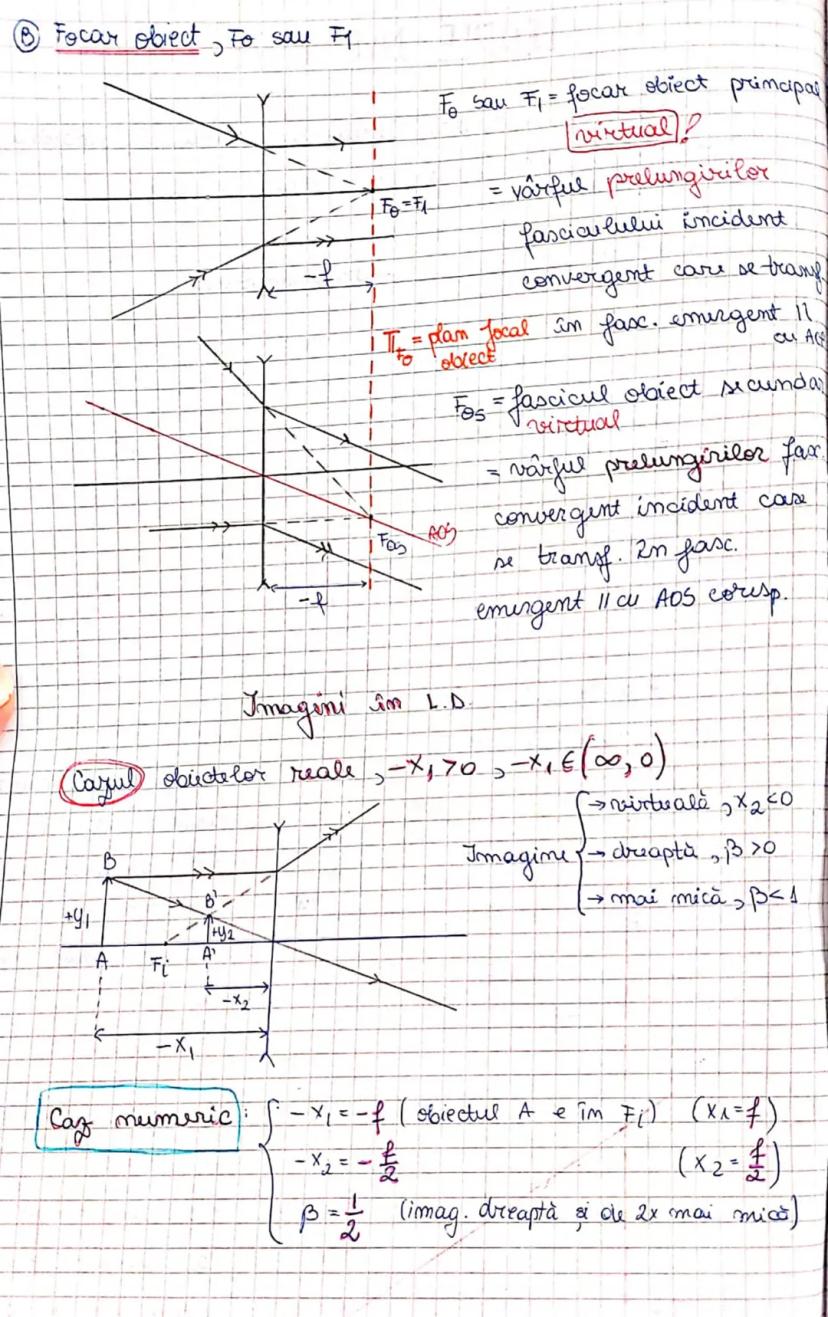 B Focar obiect, Fo sau F1
Fo sau F1 = focar obiect principal
virtual!
= vârful prelungirilor
fasciculului incident
convergent care se transf.
în fasc. emergent ||
cu AO
Fo = F1
-f
πFo = plan focal
obiect
Fos = fascicul obiect secundar
virtual
= vârful prelungirilor fax.
convergent incident case
se transf. în fasc.
emergent || cu AOS coresp.
Fos
AOS
-f
Imagini în L.D.
Cazul obiectelor reale, -x1>0, -x1 ∈ (∞, 0)
Imagine { → virtuală, x2<0
→ dreaptă, β>0
→ mai mică, β<1
B
B'
+y1
+y2
A
Fi
A'
-x2
-x1
Caz numeric: { -x1 = -f (obiectul A e în Fi) (x1=f)
-x2 = -f/2 (x2 = f/2)
β = 1/2 (imag. dreaptă și de 2x mai mică)